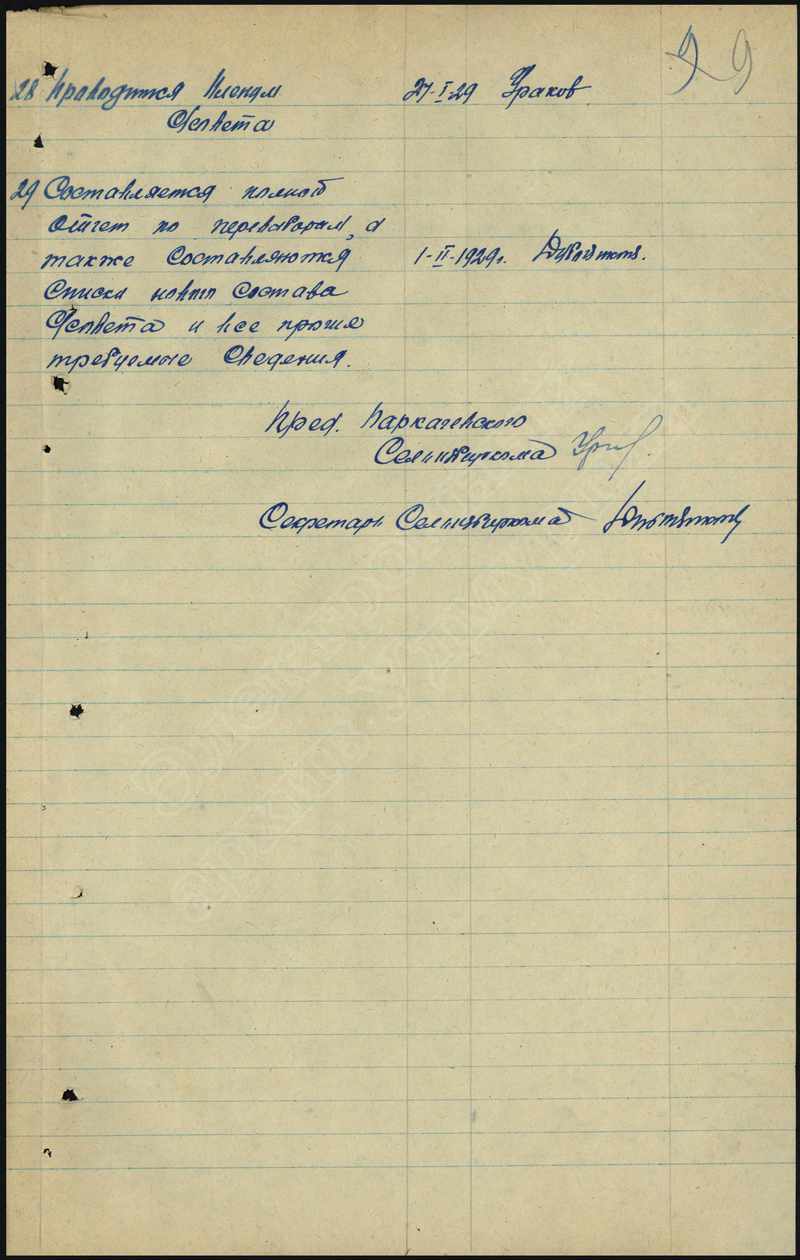 9 9
28 Проводится Пленум 27-I-29 Ураков
С/совета
29 Составляется полный
отчет по перевыборам, а
также составляются 1-II-1929г.
списки нового состава
С/совета и все проч��е
требуемые сведения.
Пред. Паркачевского
Сельизбиркома
Секретарь Сельизбиркома